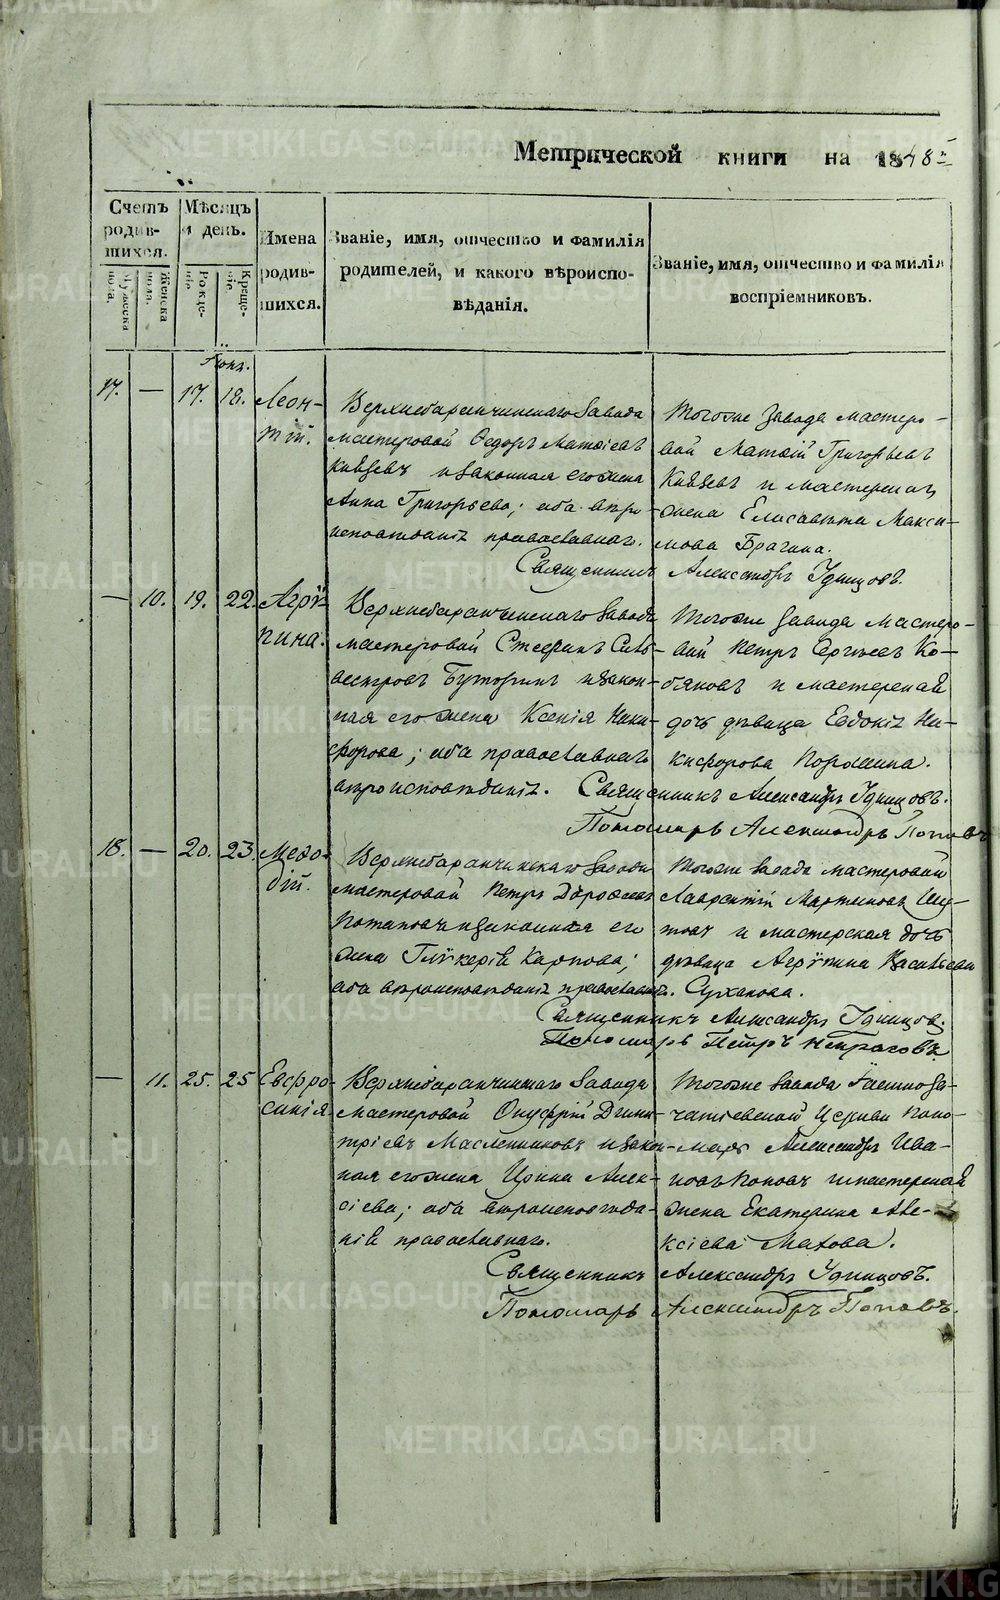 METRIKI.GASO-URAL.RU
Метрической книги на 1848й
Счетъ родив-шихся.
Мѣсяцъ и день.
Имена родив-шихся.
Званіе, имя, отчество и фамилія родителей, и какого вѣроиспо-вѣданія.
Званіе, имя, отчество и фамилія воспріемниковъ.
Мужеска пола.
Женска пола.
Рожде-ніе.
Креще-ніе.
17. — 17. 18. Леон-
тій.
Верхнебаранчинскаго завода
мастеровой Ѳедоръ Матѳіевъ
Князевъ и законная его жена
Анна Григорьева; оба вѣро-
исповѣданія православнаго.
Тогоже Завода мастеро-
вой Матѳій Григорьевъ
Князевъ и мастерскаго
жена Елисавета Макси-
мова Брагина.
Священникъ Александръ Удинцовъ.
— 10. 19. 22. Агрѵ-
пина.
Верхнебаранчинскаго завода
мастеровой Стефанъ Силь-
вестровъ Буторинъ и закон-
ная его жена Ксенія Ники-
форова; оба православнаго
вѣроисповѣданія.
Тогоже завода мастеро-
вой Петръ Сергѣевъ Ко-
бяковъ и мастерской
дочь дѣвица Евдокія Ни-
кифорова Поршина.
Священникъ Александръ Удинцовъ.
Пономарь Александръ Поповъ
18. — 20. 23. Меѳо-
дій.
Верхнебаранчинскаго завода
мастеровой Петръ Дороѳеевъ
Потаповъ и законная его
жена Глѵкерія Карпова;
оба вѣроисповѣданія православн.
Тогоже завода мастеровой
Лаврентій Мартиновъ Ши-
товъ и мастерская дочь
дѣвица Агрѵпина Васильева
Суханова.
Священникъ Александръ Удинцовъ.
Пономарь Петръ Некрасовъ
— 11. 25. 25 Евфро-
синія
Верхнебаранчинскаго завода
мастеровой Онуфрій Дими-
тріевъ Масленниковъ и закон-
ная его жена Ирина Алек-
сіева; оба вѣроисповѣда-
нія православнаго.
Тогоже завода
чатіевской Церкви поно-
марь Александръ Ива-
новъ Поповъ и мастерской
жена Екатерина Але-
ксіева Махова.
Священникъ Александръ Удинцовъ.
Пономарь Александръ Поповъ.